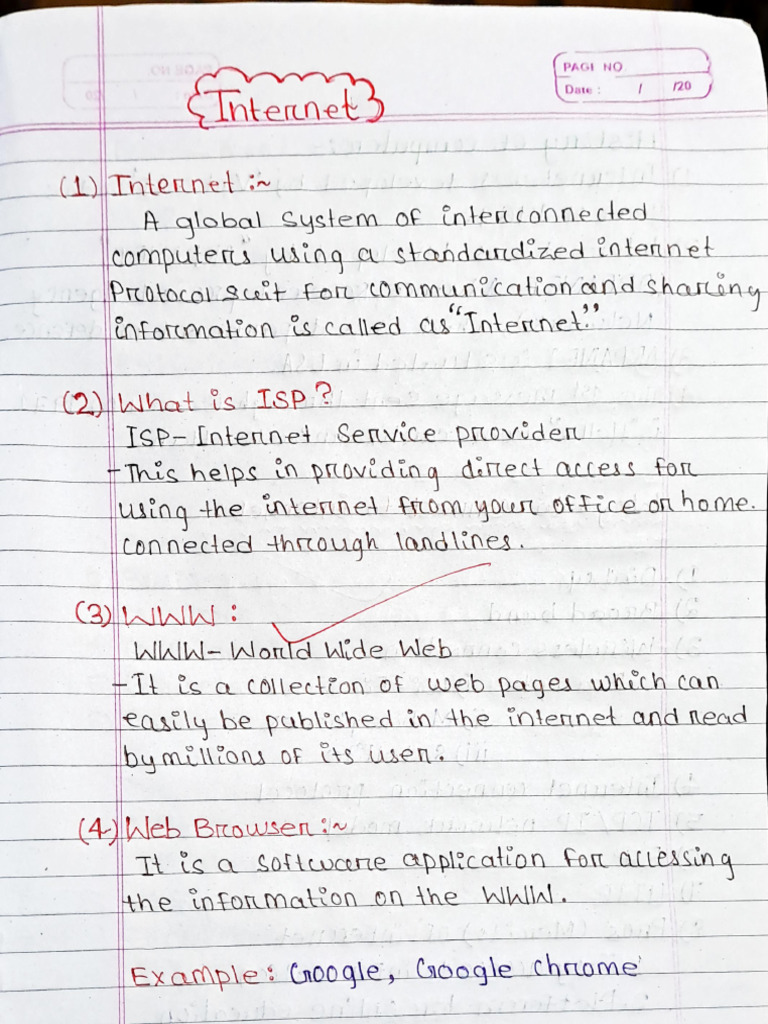 PAGE NO
Date : / /20
Internet
(1) Internet :~
A global system of interconnected
computers using a standardized internet
Protocol suit for communication and sharing
information is called as "Internet."
(2) What is ISP?
ISP- Internet Service provider
- This helps in providing direct access for
using the internet from your office or home.
connected through landlines.
(3) WWW :
WWW- World Wide Web
- It is a collection of web pages which can
easily be published in the internet and read
by millions of its user.
(4) Web Browser :~
It is a software application for accessing
the information on the WWW.
Example : Google, Google Chrome